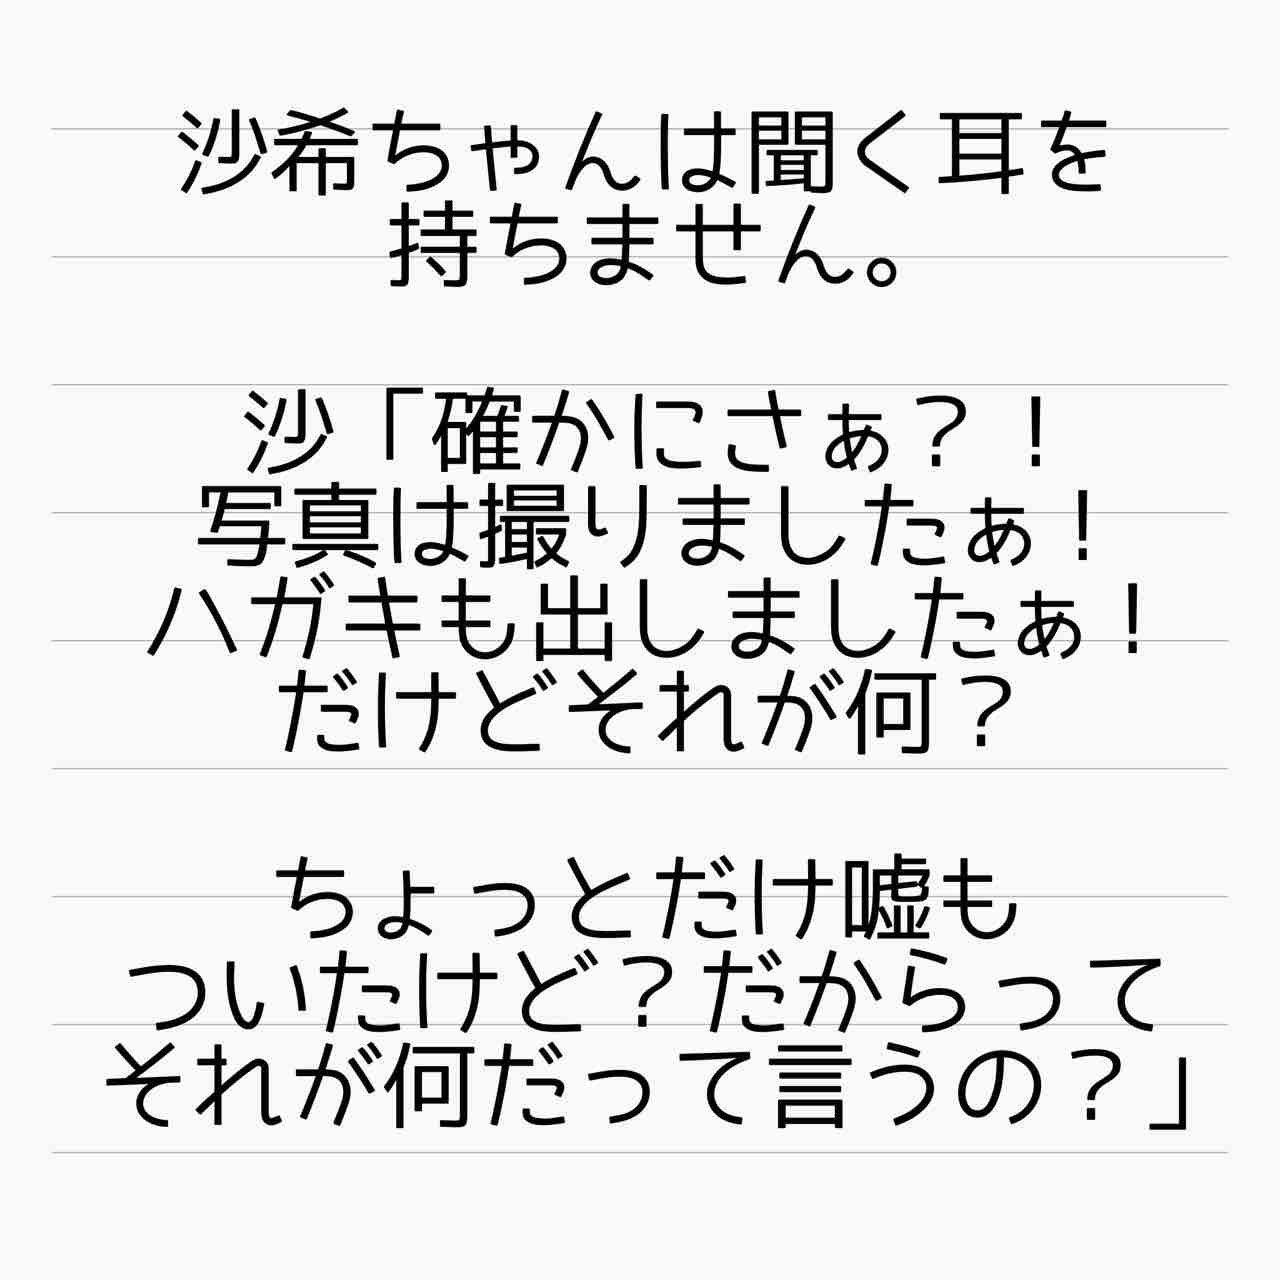 沙希ちゃんは聞く耳を
持ちません。
沙「確かにさぁ？！
写真は撮りましたぁ！
ハガキも出しましたぁ！
だけどそれが何？
ちょっとだけ嘘も
ついたけど？だからって
それが何だって言うの？」